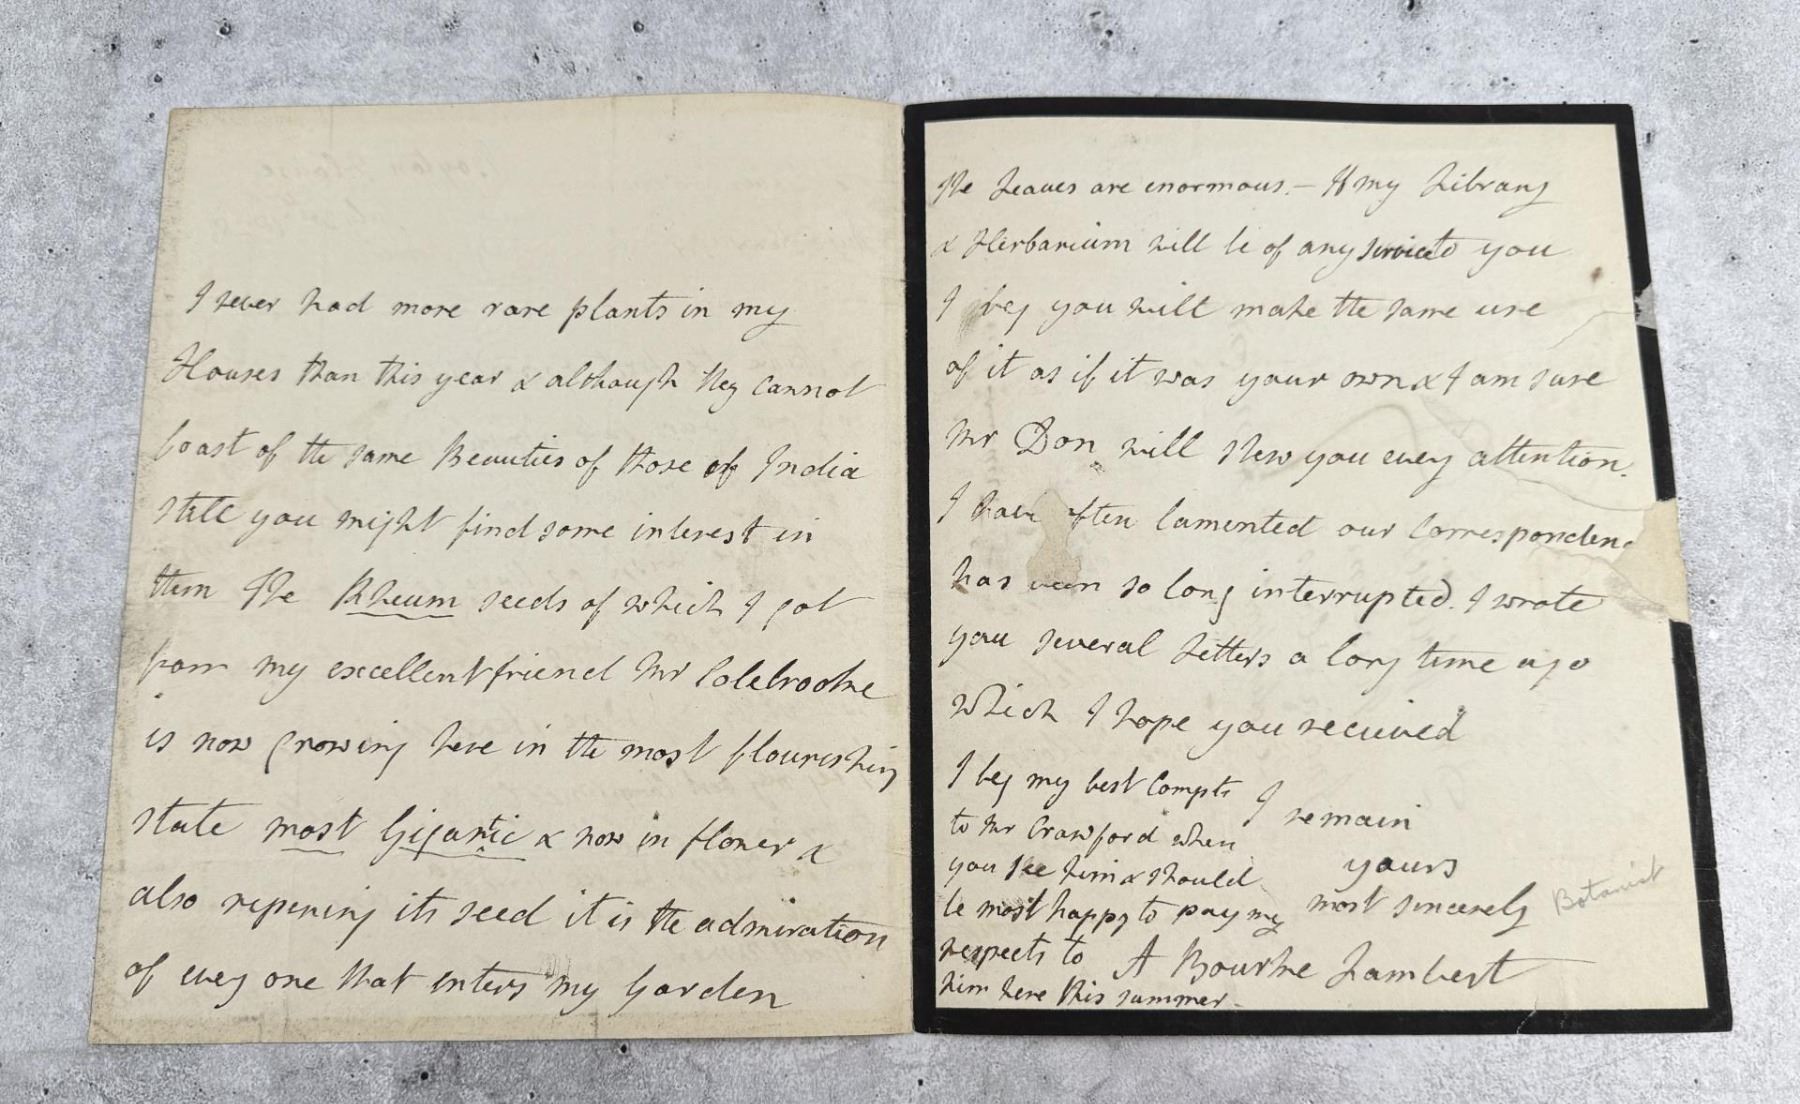 I never had more rare plants in my
Houses than this year & although they cannot
boast of the same Beauties of those of India
still you might find some interest in
them The Rheum seeds of which I got
from my excellent friend Mr Colebrooke
is now growing here in the most flourishing
state most Gigantic & now in flower &
also repening its seed it is the admiration
of every one that enters my Garden
The Leaves are enormous. – If my Library
& Herbarium will be of any service to you
I beg you will make the same use
of it as if it was your own & I am sure
Mr Don will shew you every attention.
I have often lamented our Correspondenc
has been so long interrupted. I wrote
you several Letters a long time ago
which I hope you received
I beg my best Compts
to Mr Crawford when
you see him & should
be most happy to pay my
respects to
him here this summer –
I remain
yours
most sincerely
A Bourke Lambert
Botanist